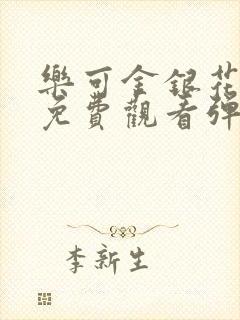 樂可金銀花
免費觀看彈
李新生